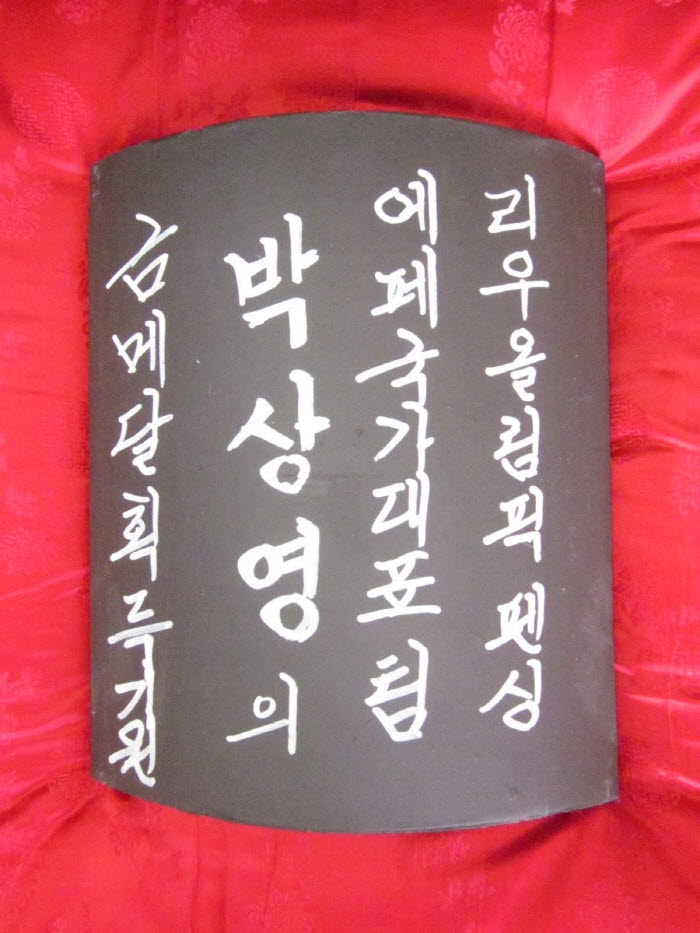 리우올림픽 펜싱
에페국가대표팀
박상영의
금메달획득기원